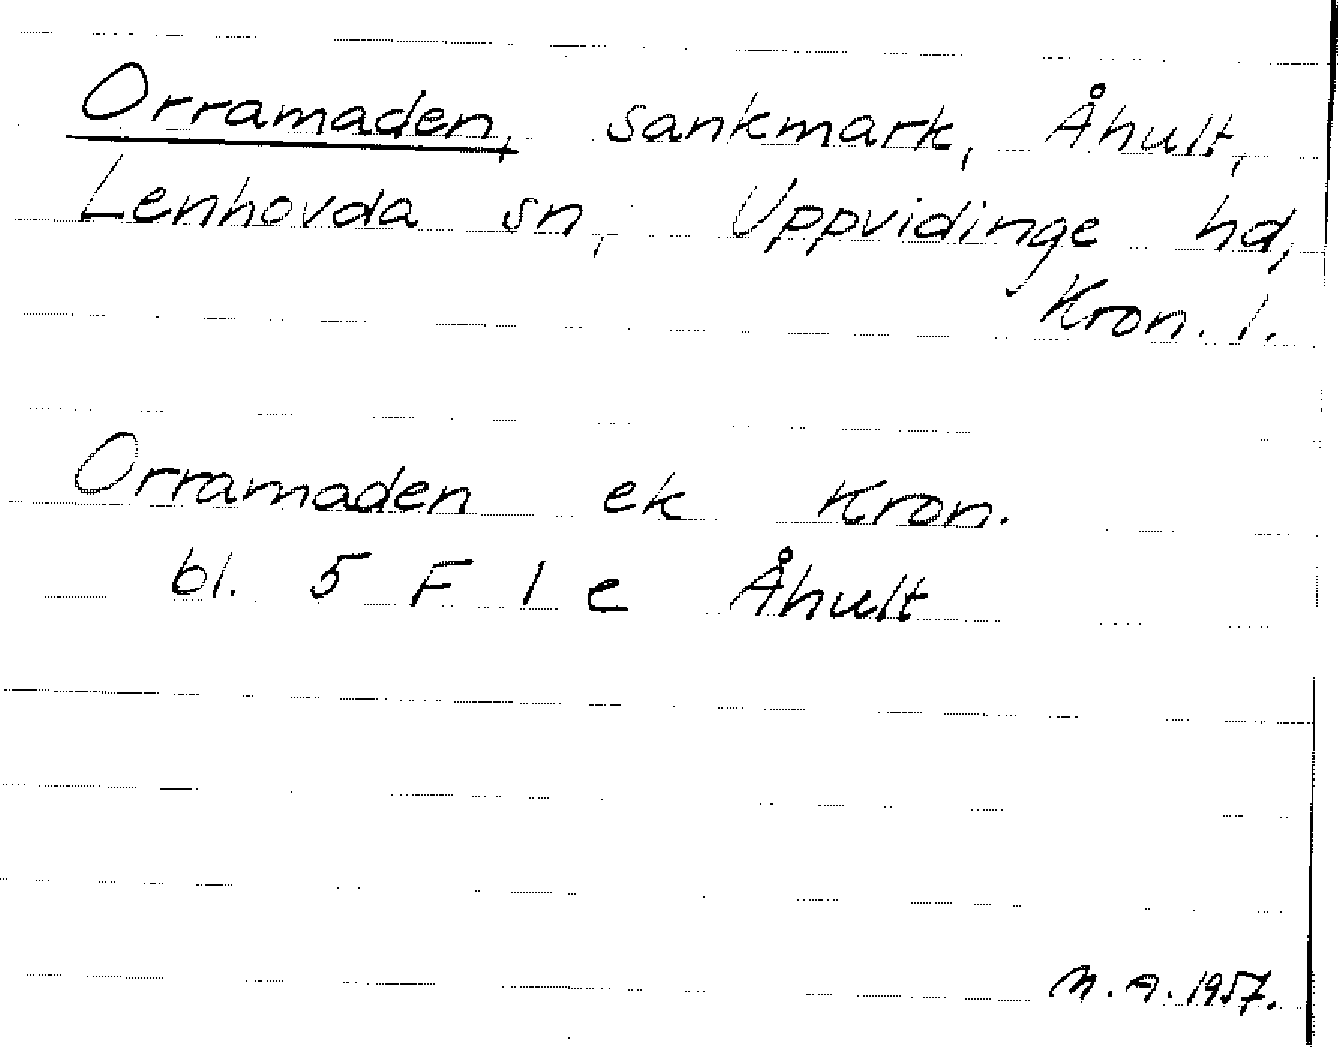 Orramaden, sankmark, Åhult,
Lenhovda sn, Uppvidinge hd,
Kron. l.
Orramaden ek Kron.
bl. 5 F 1 e Åhult
M.A. 1957.